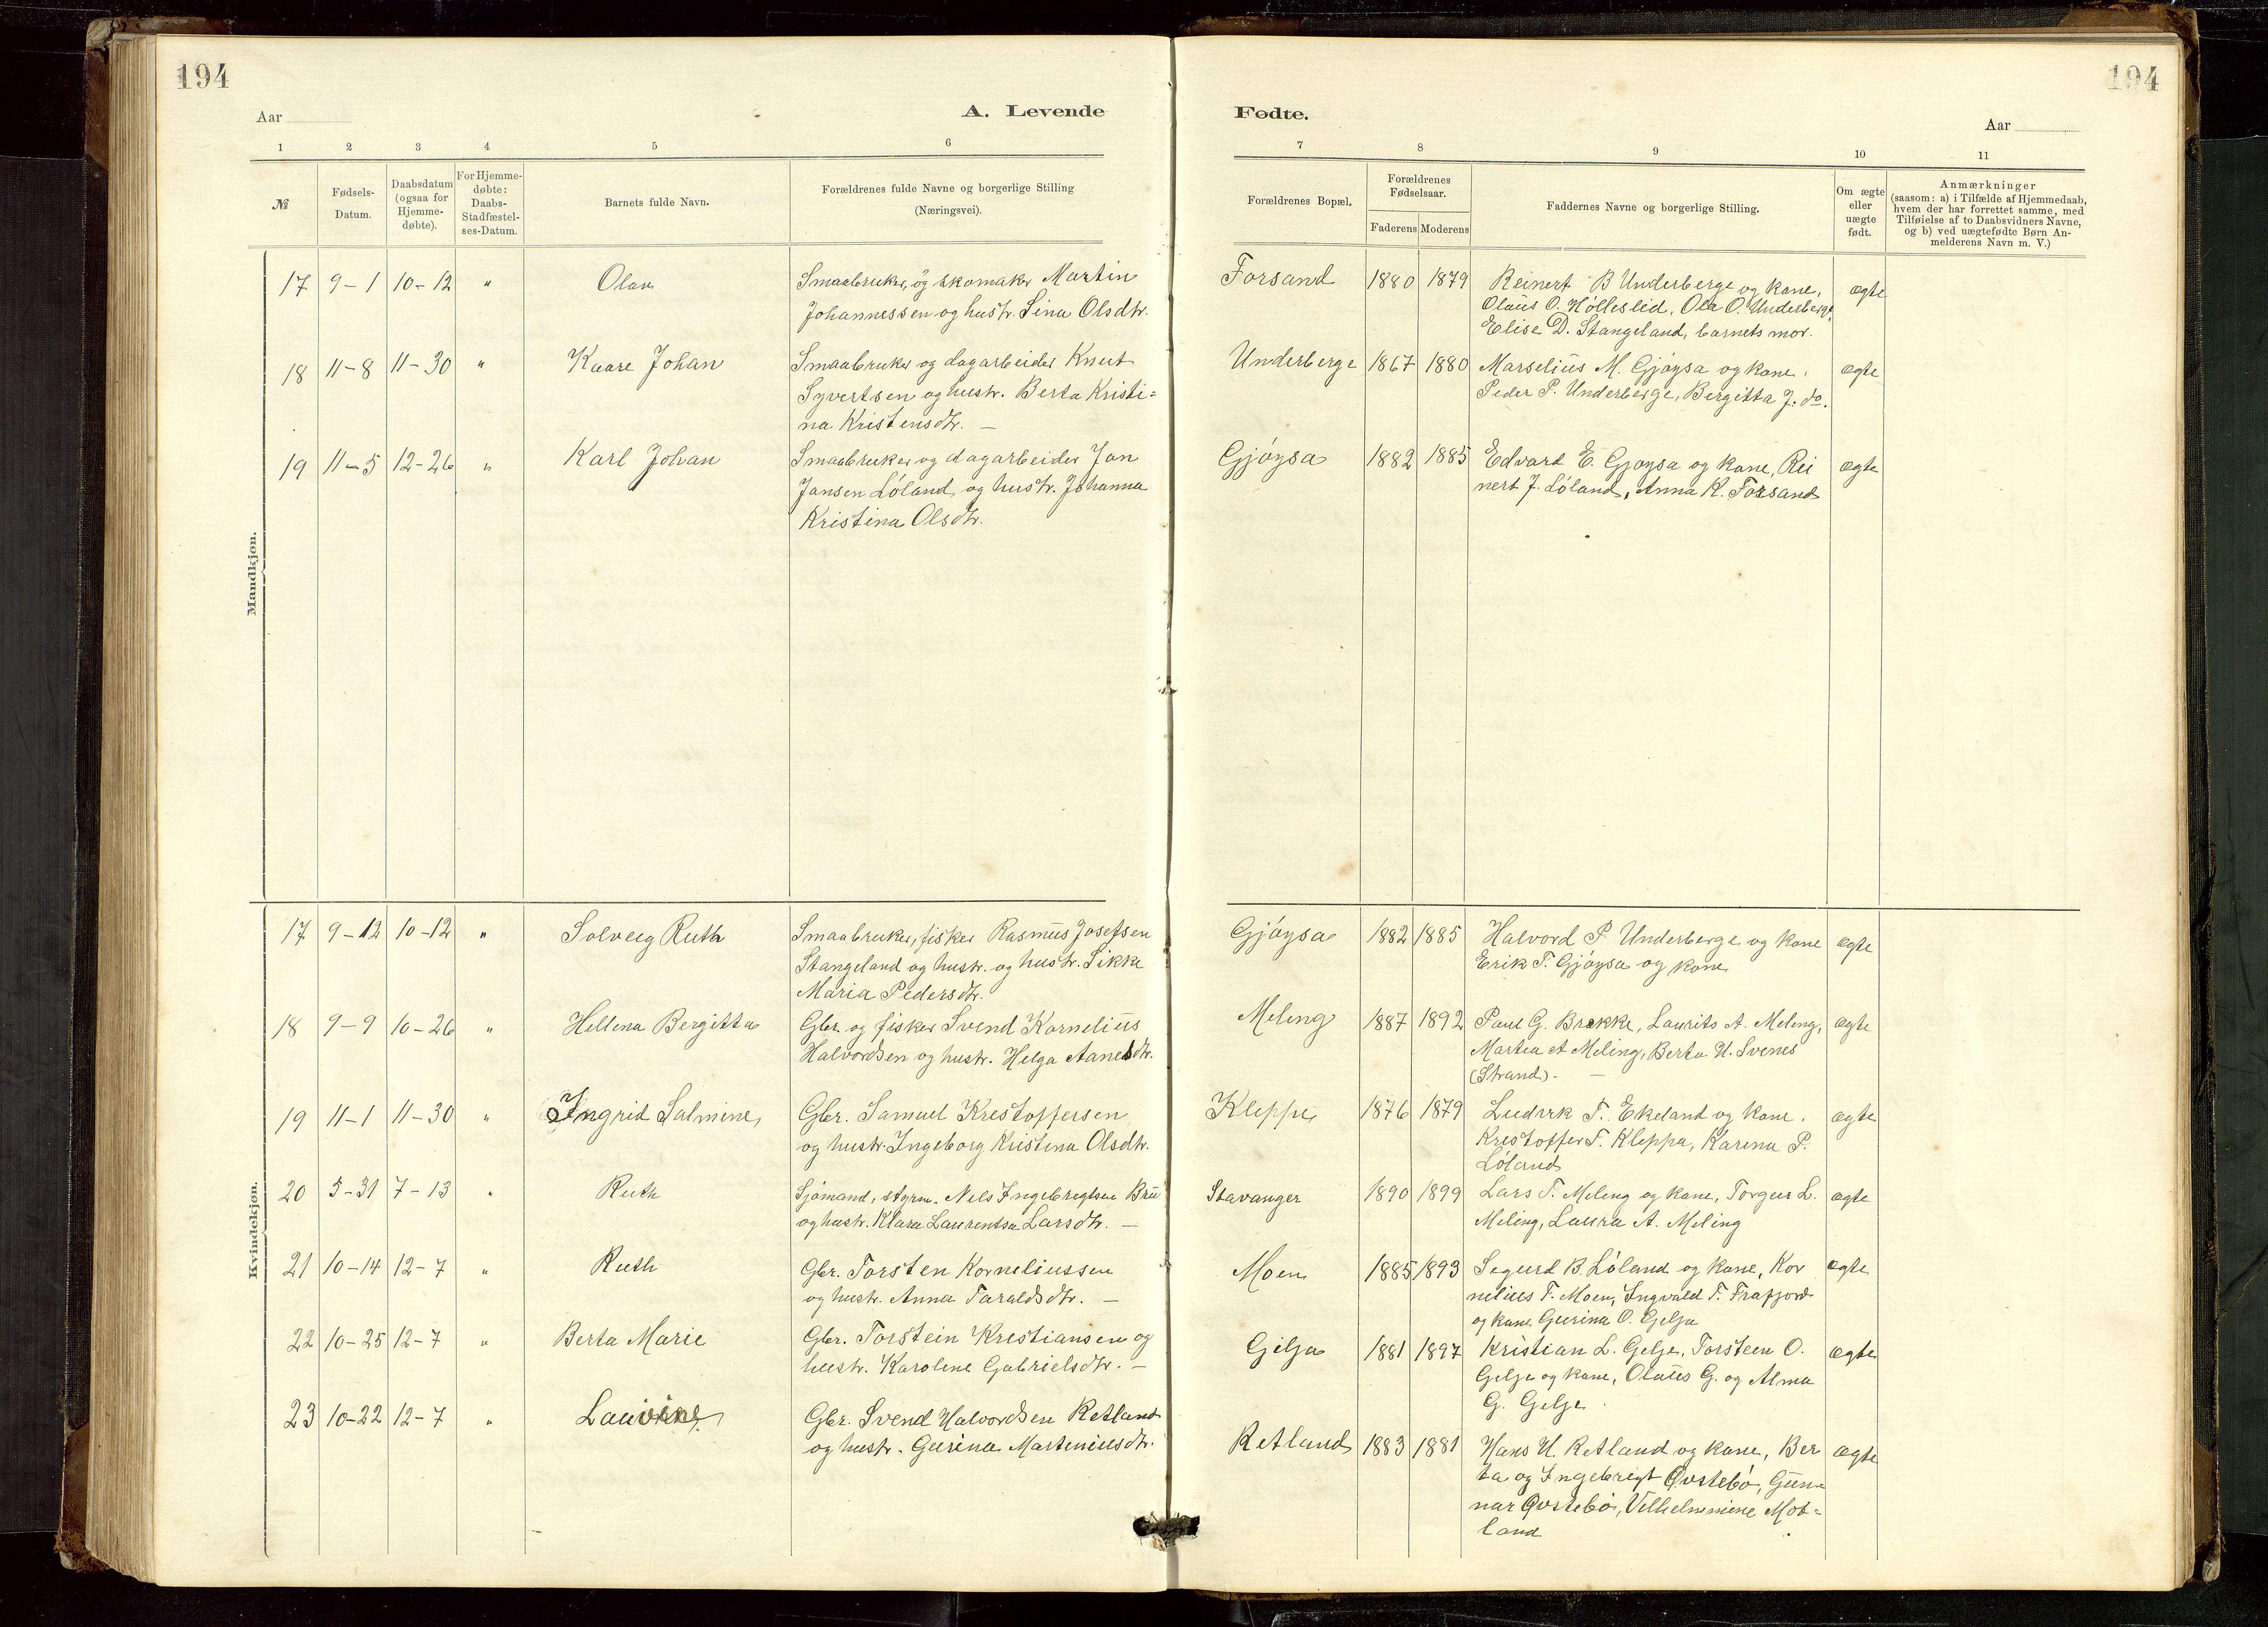 194
194
Aar
A. Levende
Fødte.
Aar
1 2 3 4 5 6 7 8 9 10 11
№
Fødsels-
Datum.
Daabsdatum
(ogsaa for
Hjemme-
døbte).
For Hjemme-
døbte:
Daabs-
Stadfæstel-
ses-Datum.
Barnets fulde Navn.
Forældrenes fulde Navne og borgerlige Stilling
(Næringsvei).
Forældrenes Bopæl.
Forældrenes
Fødselsaar.
Faderens Moderens
Faddernes Navne og borgerlige Stilling.
Om ægte
eller
uægte
født.
Anmærkninger
(saasom: a) i Tilfælde af Hjemmedaab,
hvem der har forrettet samme, med
Tilføielse af to Daabsvidners Navne,
og b) ved uægtefødte Børn An-
melderens Navn m. V.)
Mandkjøn.
17 9-1 10-12 " Olav
Smaabruker og skomaker Martin
Johannessen og hustr. Sina Olsdtr.
Forsand 1880 1879
Reinert B Underberge og kone,
Olaus O. Hølleslid, Ola O. Underberge,
Elise D. Stangeland, barnets mor.
ægte
18 11-8 11-30 " Kaare Johan
Smaabruker og dagarbeider Knut
Syvertsen og hustr. Berta Kristi=
na Kristensdtr. —
Underberge 1867 1880
Marselius M. Gjøysa og kone,
Peder P. Underberge, Bergitta J. do.
ægte
19 11-5 12-26 " Karl Johan
Smaabruker og dagarbeider Jan
Jansen Løland og hustr. Johanna
Kristina Olsdtr.
Gjøysa 1882 1885
Edvard E. Gjøysa og kone, Rei
nert J. Løland, Anna K. Forsand
ægte
Kvindekjøn.
17 9-12 10-12 " Solveig Ruth
Smaabruker, fisker Rasmus Josefsen
Stangeland og hustr. og hustr. Sikke
Maria Pedersdtr.
Gjøysa 1882 1885
Halvord P. Underberge og kone
Erik T. Gjøysa og kone
ægte
18 9-9 10-26 " Hellena Bergitta
Gbr. og fisker Svend Kornelius
Halvordsen og hustr. Helga Aanesdtr.
Meling 1887 1892
Paul G. Brekke, Laurits A. Meling,
Martea A Meling, Berta U. Svenes
(Strand). —
ægte
19 11-1 11-30 " Ingrid Salmine
Gbr. Samuel Kristoffersen
og hustr. Ingeborg Kristina Olsdtr.
Kleppa 1876 1879
Ludvik T. Ekeland og kone,
Kristoffer T. Kleppa, Karina P.
Løland
ægte
20 5-31 7-13 " Ruth
Sjømand, styrm. Nels Ingebregtsen Bru
og hustr. Klara Laurentse Larsdtr. —
Stavanger 1890 1899
Lars T. Meling og kone, Torgeir L.
Meling, Laura A. Meling
ægte
21 10-14 12-7 " Ruth
Gbr. Torsten Korneliussen
og hustr. Anna Taraldsdtr. —
Moen 1885 1893
Segurd B. Løland og kone, Kor
nelius T. Moen, Ingvald T. Frafjord
og kone Gurina O. Gilja
ægte
22 10-25 12-7 " Berta Marie
Gbr. Torstein Kristiansen og
hustr. Karolene Gabrielsdtr. —
Gilja 1881 1897
Kristian L. Gelje, Torsteen O.
Gelje og kone, Olaus G. og Alma
G. Gelje.
ægte
23 10-22 12-7 "
Gbr. Svend Halvordsen Retland
og hustr. Gurina Marteniusdtr.
Retland 1883 1881
Hans H. Retland og kone, Ber
ta og Ingebrigt Øvstebø, Gun=
nar Øvstebø, Vilhelmine Mot=
land
ægte